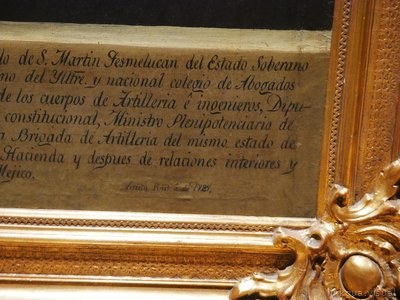 lo de S. Martin Tesmelucan del Estado Soberano
no del Yltre. y nacional colegio de Abogados
de los cuerpos de Artilleria è ingenieros, Depu-
constitucional, Ministro Plenipotenciario de
a Brigada de Artilleria del mismo estado de
Hacienda y despues de relaciones interiores y
Mejico.